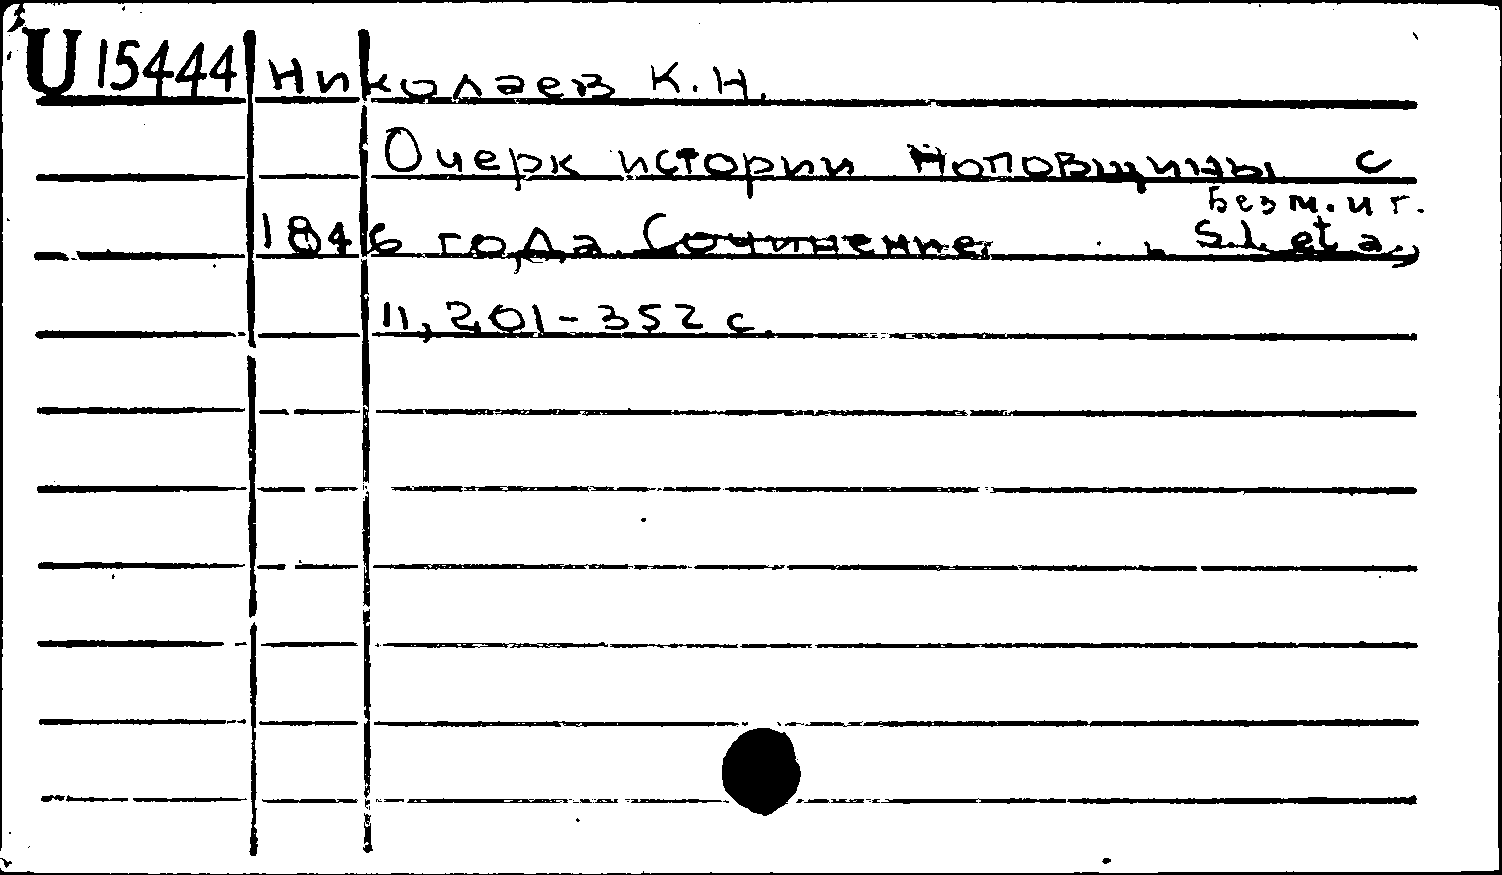 U 15444 Николаев К. Н.
Очерк истории поповщины с
Без м. и г.
1846 года. Сочинение S.l. et a.,
II, 201-352 с.